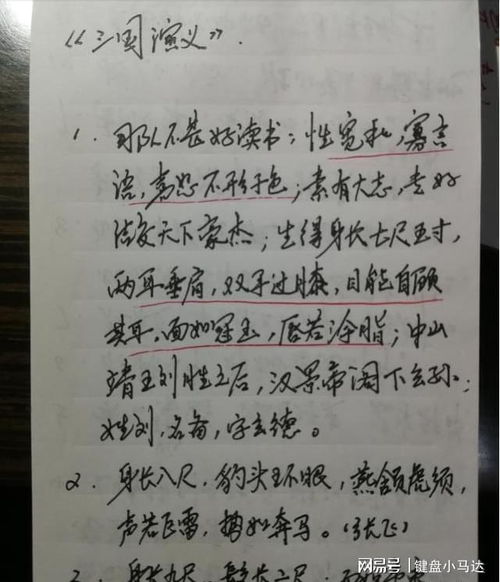 《三国演义》.
1. 那队不甚好读书；性宽和，寡言
语，喜怒不形于色；素有大志，专好
结交天下豪杰；生得身长七尺五寸，
两耳垂肩，双手过膝，目能自顾
其耳，面如冠玉，唇若涂脂；中山
靖王刘胜之后，汉景帝阁下玄孙；
姓刘，名备，字玄德。
2. 身长八尺，豹头环眼，燕颔虎须，
声若巨雷，势如奔马。（张飞）
身长九尺，髯长二尺，
网易号 | 键盘小马达